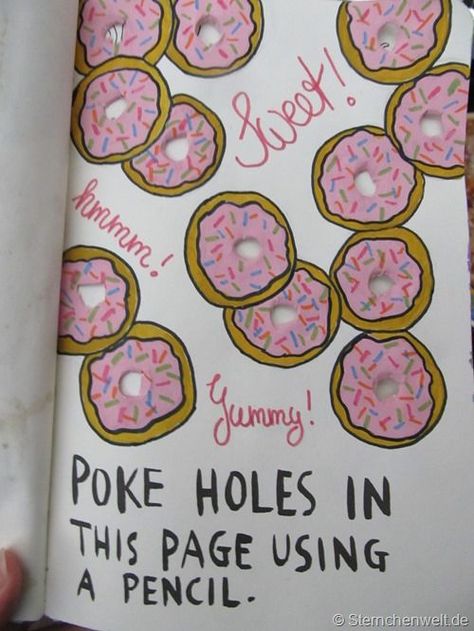 Sweet!
hmmm!
Yummy!
POKE HOLES IN
THIS PAGE USING
A PENCIL.
© Sternchenwelt.de